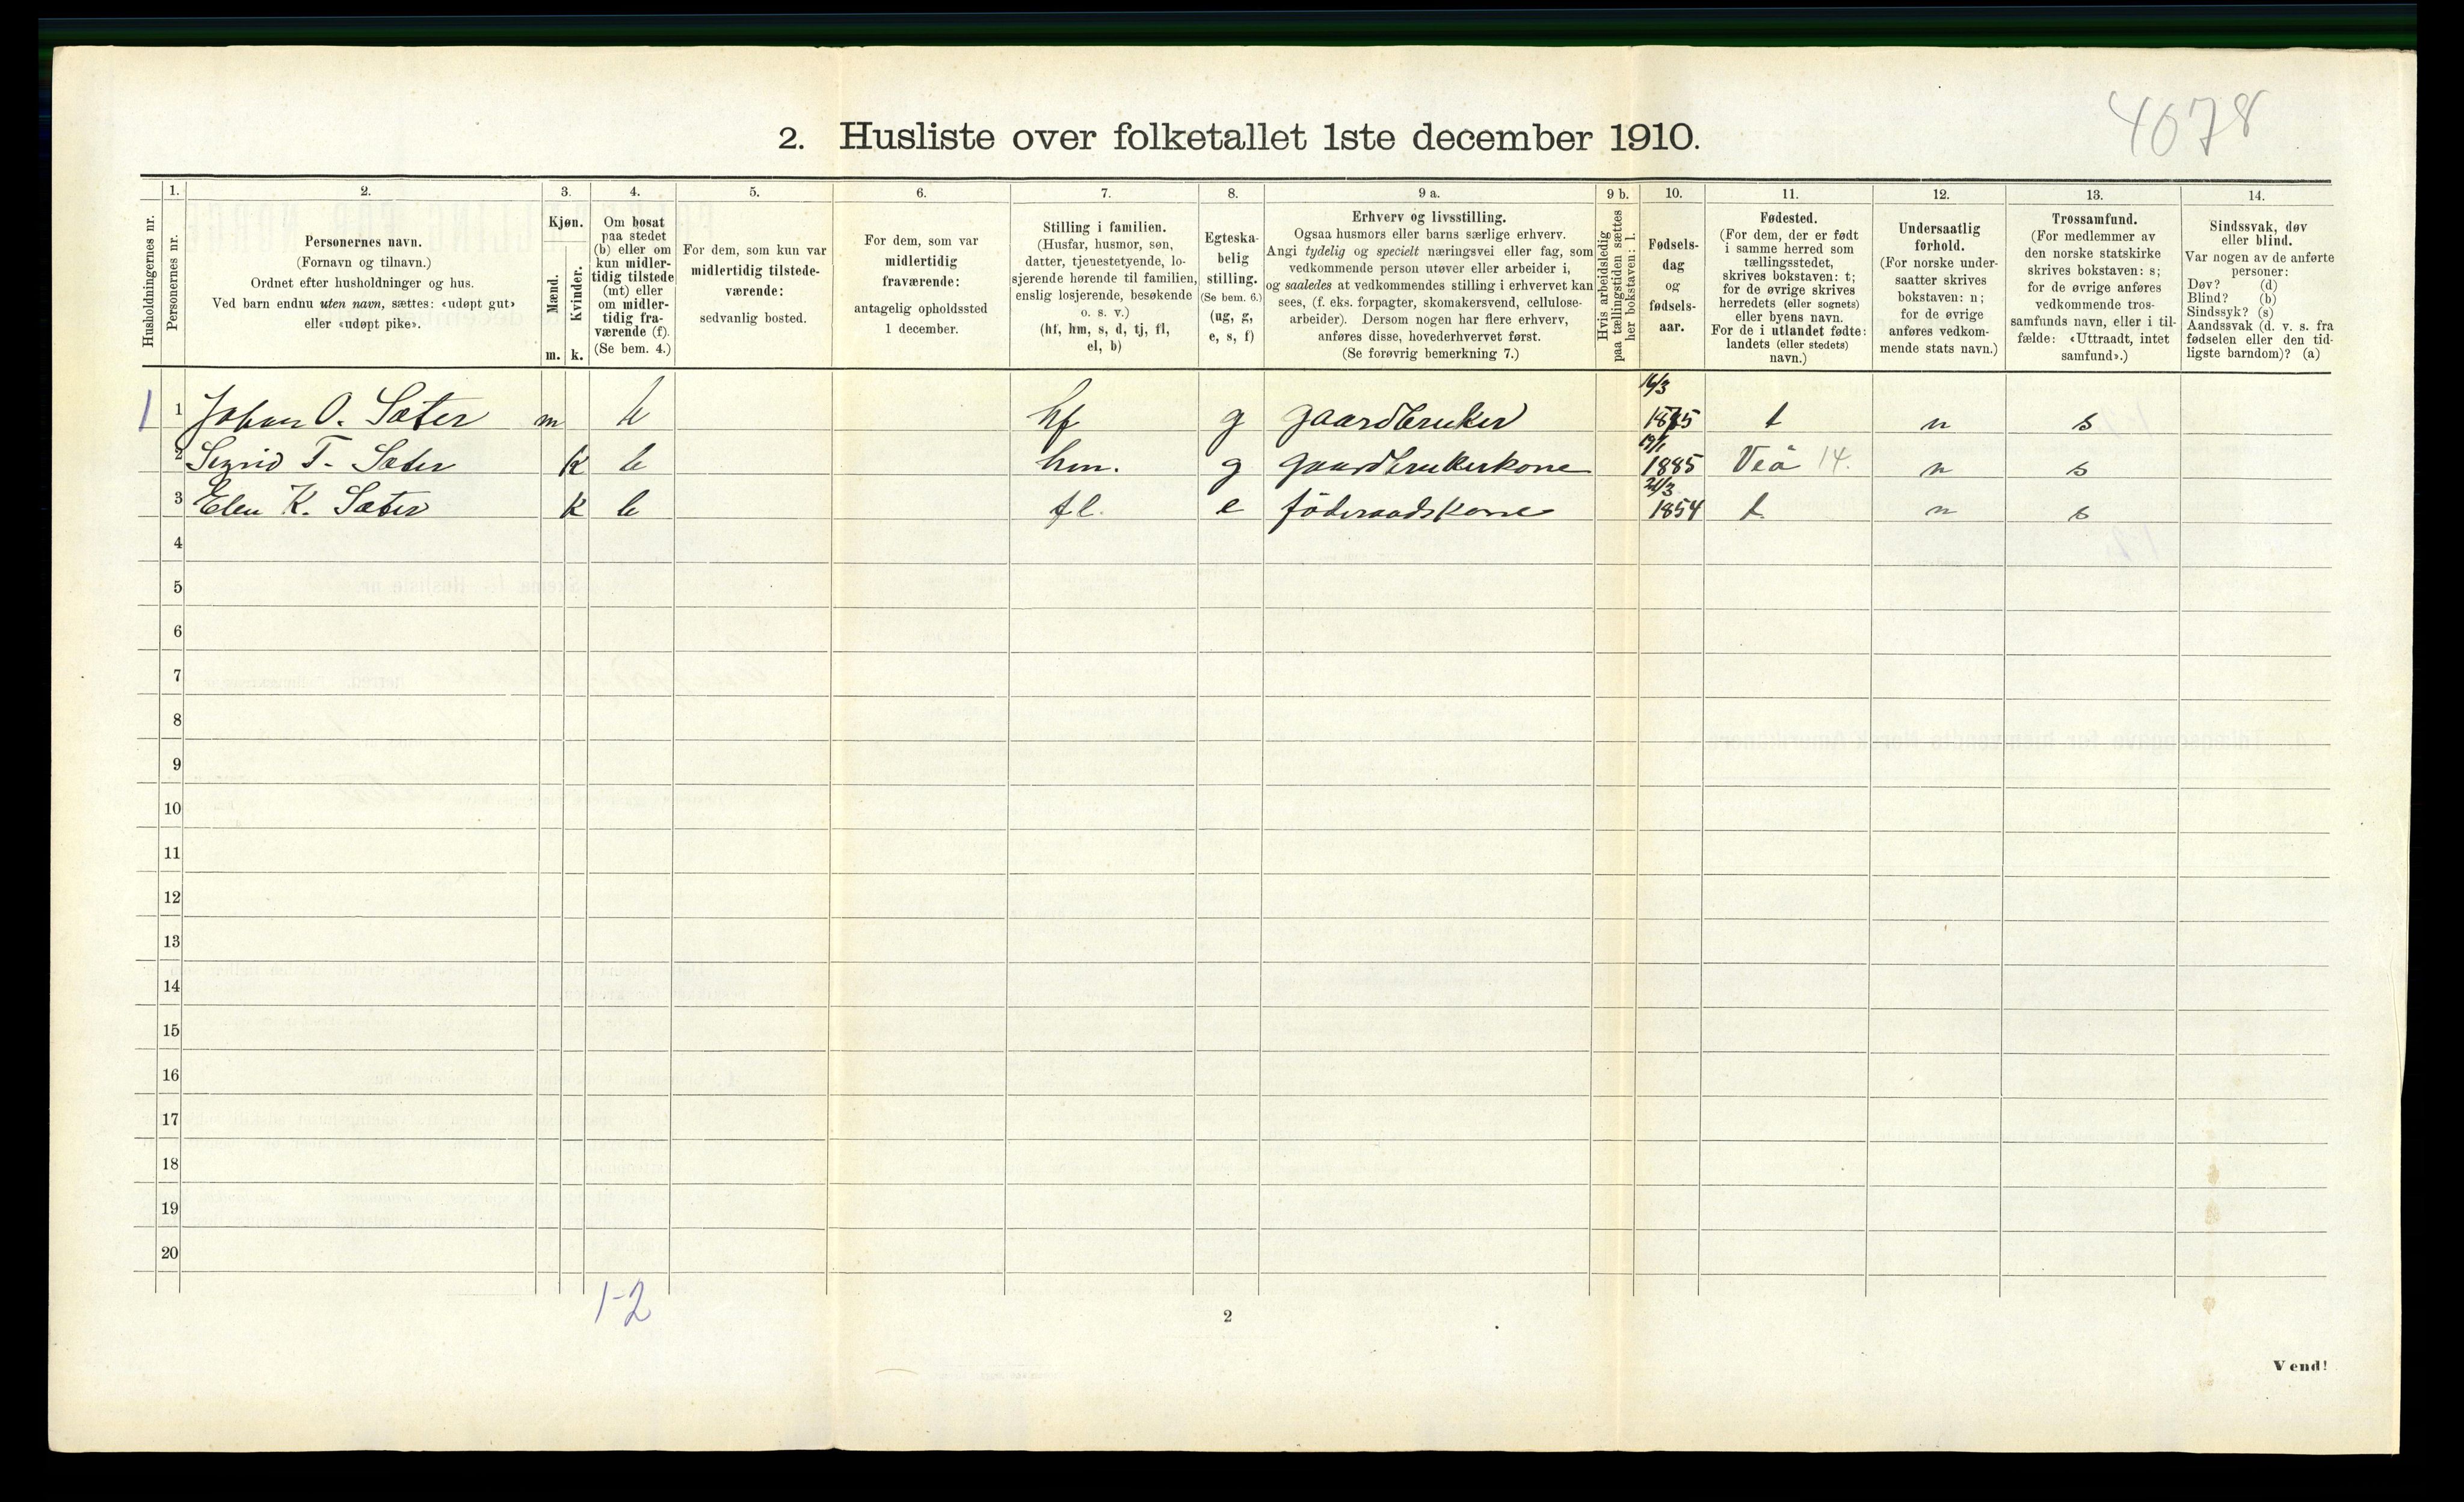 4078
2. Husliste over folketallet 1ste december 1910.
Husholdningernes nr.
1.
Personernes nr.
2.
Personernes navn.
(Fornavn og tilnavn.)
Ordnet efter husholdninger og hus.
Ved barn endnu uten navn, sættes: «udøpt gut»
eller «udøpt pike».
3.
Kjøn.
Mænd.
Kvinder.
m. k.
4.
Om bosat
paa stedet
(b) eller om
kun midler-
tidig tilstede
(mt) eller
om midler-
tidig fra-
værende (f).
(Se bem. 4.)
5.
For dem, som kun var
midlertidig tilstede-
værende:
sedvanlig bosted.
6.
For dem, som var
midlertidig
fraværende:
antagelig opholdssted
1 december.
7.
Stilling i familien.
(Husfar, husmor, søn,
datter, tjenestetyende, lo-
sjerende hørende til familien,
enslig losjerende, besøkende
o. s. v.)
(hf, hm, s, d, tj, fl,
el, b)
8.
Egteska-
belig
stilling.
(Se bem. 6.)
(ug, g,
e, s, f)
9 a.
Erhverv og livsstilling.
Ogsaa husmors eller barns særlige erhverv.
Angi tydelig og specielt næringsvei eller fag, som
vedkommende person utøver eller arbeider i,
og saaledes at vedkommendes stilling i erhvervet kan
sees, (f. eks. forpagter, skomakersvend, cellulose-
arbeider). Dersom nogen har flere erhverv,
anføres disse, hovederhvervet først.
(Se forøvrig bemerkning 7.)
9 b.
Hvis arbeidsledig
paa tællingstiden sættes
her bokstaven: l.
10.
Fødsels-
dag
og
fødsels-
aar.
11.
Fødested.
(For dem, der er født
i samme herred som
tællingsstedet,
skrives bokstaven: t;
for de øvrige skrives
herredets (eller sognets)
eller byens navn.
For de i utlandet fødte:
landets (eller stedets)
navn.)
12.
Undersaatlig
forhold.
(For norske under-
saatter skrives
bokstaven: n;
for de øvrige
anføres vedkom-
mende stats navn.)
13.
Trossamfund.
(For medlemmer av
den norske statskirke
skrives bokstaven: s;
for de øvrige anføres
vedkommende tros-
samfunds navn, eller i til-
fælde: «Uttraadt, intet
samfund».)
14.
Sindssvak, døv
eller blind.
Var nogen av de anførte
personer:
Døv? (d)
Blind? (b)
Sindssyk? (s)
Aandssvak (d. v. s. fra
fødselen eller den tid-
ligste barndom)? (a)
1 1 Johan O. Sæter m b hf g gaardbruker 16/3 t n s
2 Sigrid T. Sæter k b hm. g gaardbrukerkone 19/1 1885 Veö 14. n s
3 Elen K. Sæter k b fl. e föderaadskone 1854 t. n s
4
5
6
7
8
9
10
11
12
13
14
15
16
17
18
19
20
1-2
2
Vend!